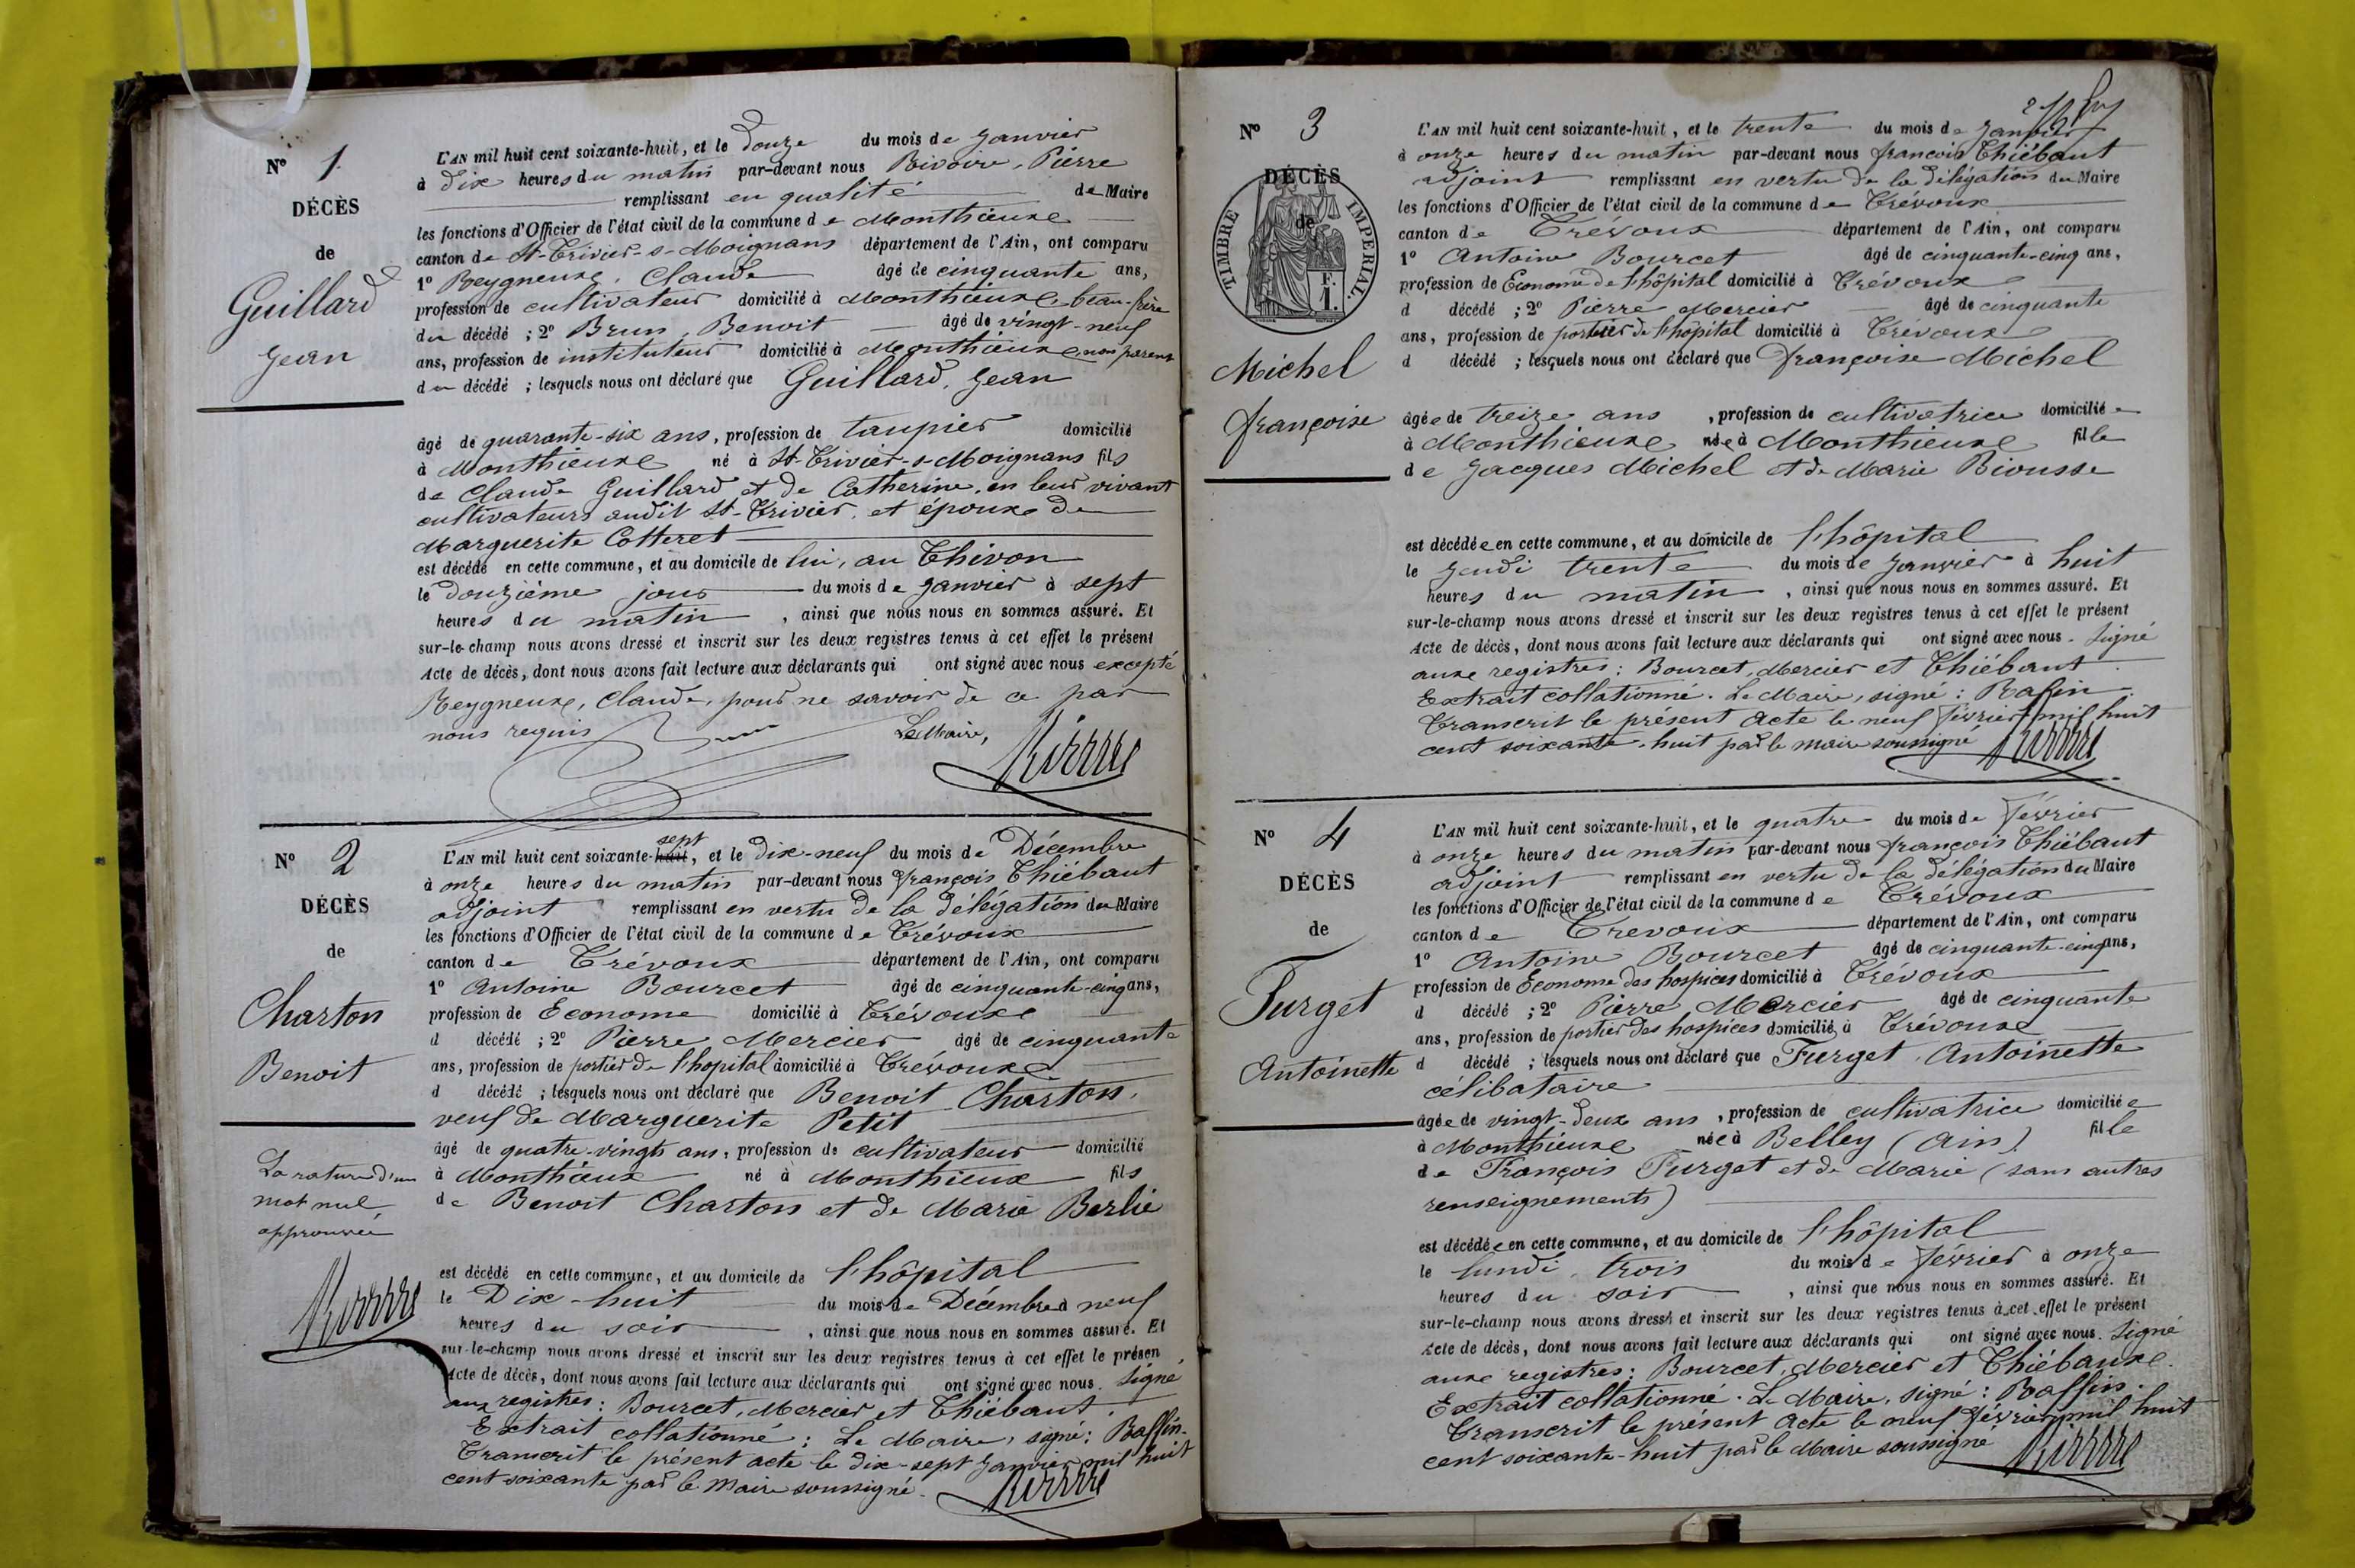 N° 1
DÉCÈS
de
Guillard
Jean
L'AN mil huit cent soixante-huit, et le Douze du mois de Janvier
à Dix heures du matin par-devant nous Pierre
remplissant en qualité de Maire
les fonctions d'Officier de l'état civil de la commune de Monthieux
canton de St-Trivier-s-Moignans département de l'Ain, ont comparu
1° Reygneux, Claude âgé de cinquante ans,
profession de cultivateur domicilié à Monthieux, beau-frère
du décédé ; 2° Brun, Benoit âgé de vingt-neuf
ans, profession de instituteur domicilié à Monthieux, non parent
du décédé ; lesquels nous ont déclaré que Guillard, Jean
âgé de quarante-six ans, profession de taupier domicilié
à Monthieux né à St-Trivier-s-Moignans fils
de Claude Guillard et de Catherine, en leur vivant
cultivateurs audit St-Trivier, et époux de
Marguerite Cotteret
est décédé en cette commune, et au domicile de lui, au Thivon
le Douzième jour du mois de Janvier à sept
heures du matin, ainsi que nous nous en sommes assuré. Et
sur-le-champ nous avons dressé et inscrit sur les deux registres tenus à cet effet le présent
Acte de décès, dont nous avons fait lecture aux déclarants qui ont signé avec nous excepté
Reygneux, Claude, pour ne savoir de ce par
nous requis
Le Maire,
N° 2
DÉCÈS
de
Charton
Benoit
La rature d'un
mot nul
approuvée
sept
L'AN mil huit cent soixante-huit, et le Dix-neuf du mois de Décembre
à onze heures du matin par-devant nous François Thiébaut
adjoint remplissant en vertu de la délégation du Maire
les fonctions d'Officier de l'état civil de la commune de Trévoux
canton de Trévoux département de l'Ain, ont comparu
1° Antoine Bourcet âgé de cinquante-cinq ans,
profession de Econome domicilié à Trévoux
d décédé ; 2° Pierre Mercier âgé de cinquante
ans, profession de portier de l'hopital domicilié à Trévoux
d décédé ; lesquels nous ont déclaré que Benoit Charton,
veuf de Marguerite Petit
âgé de quatre-vingts ans, profession de cultivateur domicilié
à Monthieux né à Monthieux fils
de Benoit Charton et de Marie Berlié
est décédé en cette commune, et au domicile de l'hôpital
le Dix-huit du mois de Décembre à neuf
heures du soir, ainsi que nous nous en sommes assuré. Et
sur-le-champ nous avons dressé et inscrit sur les deux registres tenus à cet effet le présen
Acte de décès, dont nous avons fait lecture aux déclarants qui ont signé avec nous. Signé
aux registres : Bourcet, Mercier et Thiébaut.
Extrait collationné : Le Maire, signé : Raffin.
Transcrit le présent acte le dix-sept Janvier mil huit
cent soixante par le Maire soussigné.
N° 3
DÉCÈS
de
TIMBRE IMPÉRIAL.
F.
1.
Michel
françoise
L'AN mil huit cent soixante-huit, et le trente du mois de Janvier
à onze heures du matin par-devant nous françois Thiébaut
adjoint remplissant en vertu de la délégation du Maire
les fonctions d'Officier de l'état civil de la commune de Trévoux
canton de Trévoux département de l'Ain, ont comparu
1° Antoine Bourcet âgé de cinquante-cinq ans,
profession de Econome de l'hôpital domicilié à Trévoux
d décédé ; 2° Pierre Mercier âgé de cinquante
ans, profession de portier de l'hôpital domicilié à Trévoux
d décédé ; lesquels nous ont déclaré que françoise Michel
âgée de treize ans, profession de cultivatrice domiciliée
à Monthieux née à Monthieux fille
de Jacques Michel et de Marie Biousse
est décédée en cette commune, et au domicile de l'hôpital
le Jeudi trente du mois de Janvier à huit
heures du matin, ainsi que nous nous en sommes assuré. Et
sur-le-champ nous avons dressé et inscrit sur les deux registres tenus à cet effet le présent
Acte de décès, dont nous avons fait lecture aux déclarants qui ont signé avec nous. Signé
aux registres : Bourcet, Mercier et Thiébaut.
Extrait collationné. Le Maire, signé : Raffin.
Transcrit le présent Acte le neuf février mil huit
cent soixante-huit par le maire soussigné
N° 4
DÉCÈS
de
Furget
Antoinette
L'AN mil huit cent soixante-huit, et le quatre du mois de Février
à onze heures du matin par-devant nous françois Thiébaut
adjoint remplissant en vertu de la délégation du Maire
les fonctions d'Officier de l'état civil de la commune de Trévoux
canton de Trévoux département de l'Ain, ont comparu
1° Antoine Bourcet âgé de cinquante-cinq ans,
profession de Econome des hospices domicilié à Trévoux
d décédé ; 2° Pierre Mercier âgé de cinquante
ans, profession de portier des hospices domicilié à Trévoux
d décédé ; lesquels nous ont déclaré que Furget, Antoinette
célibataire
âgée de vingt-deux ans, profession de cultivatrice domiciliée
à Monthieux née à Belley (Ain) fille
de François Furget et de Marie (sans autres
renseignements)
est décédée en cette commune, et au domicile de l'hôpital
le lundi, trois du mois de Février à onze
heures du soir, ainsi que nous nous en sommes assuré. Et
sur-le-champ nous avons dressé et inscrit sur les deux registres tenus à cet effet le présent
Acte de décès, dont nous avons fait lecture aux déclarants qui ont signé avec nous. Signé
aux registres : Bourcet, Mercier et Thiébaux.
Extrait collationné. Le Maire, signé : Raffin.
Transcrit le présent Acte le neuf Février mil huit
cent soixante-huit par le Maire soussigné